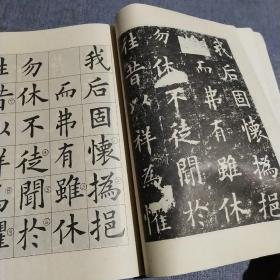 我后固懷撝挹
而弗有雖休
勿休不徒聞於
往昔以祥為懼
我后固懷撝挹
而弗有雖休
勿休不徒聞於
往昔以祥為懼